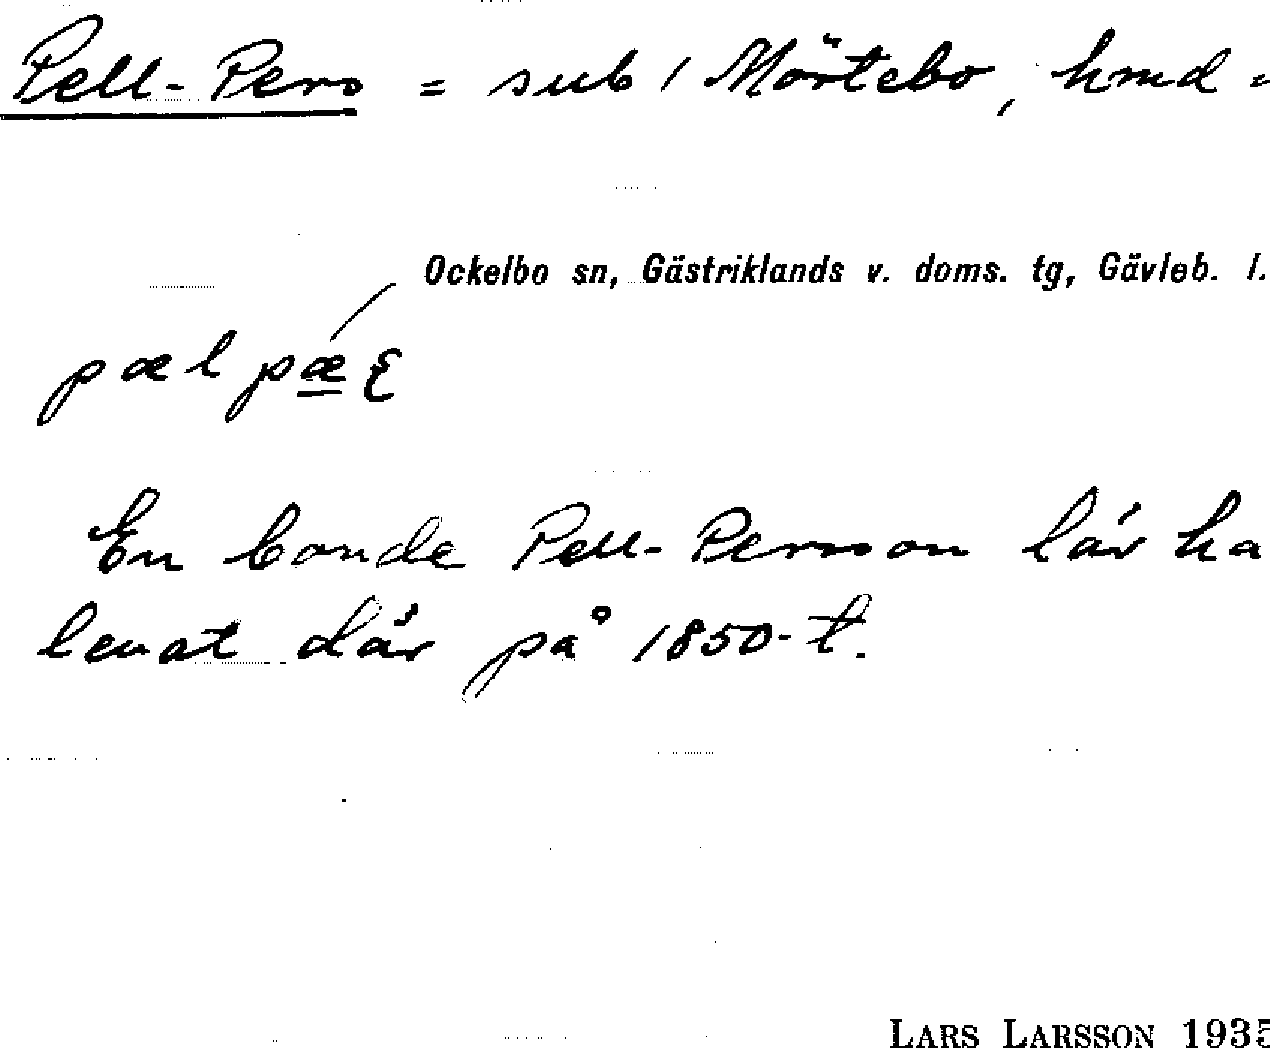 Pell-Pers = sub / Mörtebo, hmd =
Ockelbo sn, Gästriklands v. doms. tg, Gävleb. l.
pæl pæ
En bonde Pell-Persson lär ha
levat där på 1850-t.
LARS LARSSON 1935